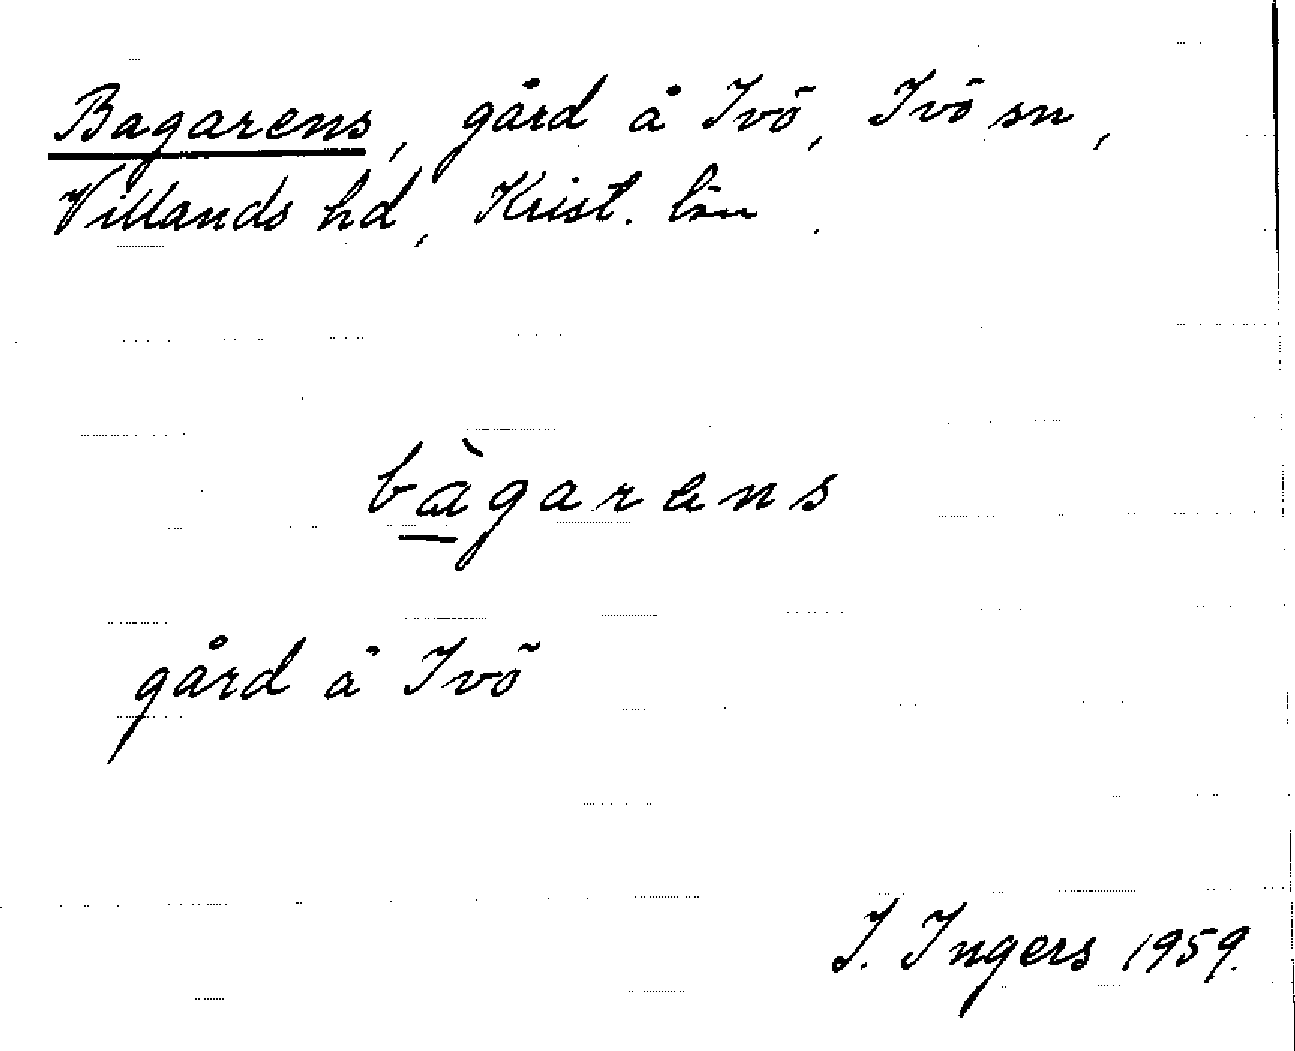 Bagarens, gård å Ivö, Ivö sn,
Villands hd, Krist. län.
bàgarens
gård å Ivö
I. Ingers 1959.